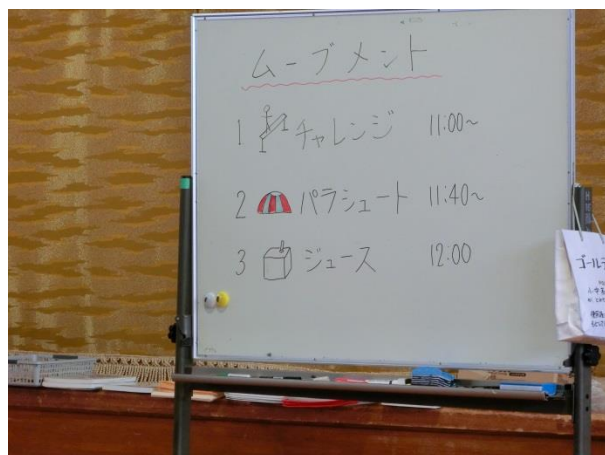 ムーブメント
1 チャレンジ 11:00~
2 パラシュート 11:40~
3 ジュース 12:00